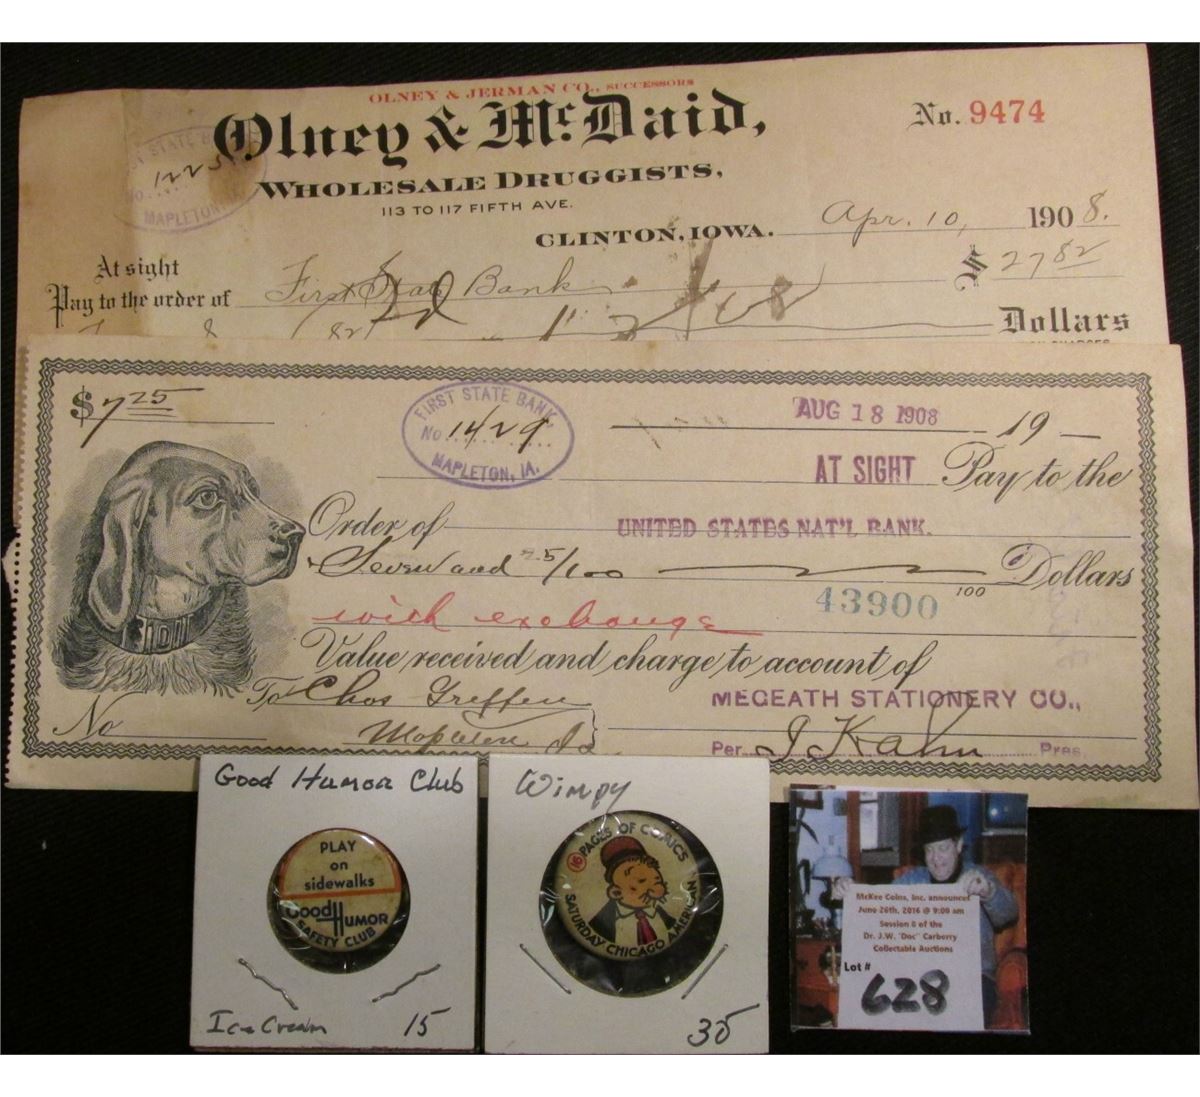 OLNEY & JERMAN CO., SUCCESSORS
Olney & McDaid,
No. 9474
WHOLESALE DRUGGISTS,
113 TO 117 FIFTH AVE.
CLINTON, IOWA. Apr. 10, 1908.
No. 1225
MAPLETON
At sight
$ 27 82
Pay to the order of First State Bank
Dollars
$7 25
FIRST STATE BANK
No. 1429
MAPLETON, IA.
AUG 18 1908
19
AT SIGHT Pay to the
Order of UNITED STATES NAT'L BANK.
Seven and 25/100 100 Dollars
43900
with exchange
Value received and charge to account of
To Chas Greffen
MEGEATH STATIONERY CO.,
No Mapleton Ia
Per I Kahn Pres.
Good Humor Club
PLAY
on
sidewalks
Good HUMOR
SAFETY CLUB
Ice Cream 15
Wimpy
16 PAGES OF COMICS
SATURDAY CHICAGO AMERICAN
35
McKee Coins, Inc. announces
June 26th, 2016 @ 9:00 am
Session 8 of the
Dr. J.W. "Doc" Carberry
Collectable Auctions
Lot #
628